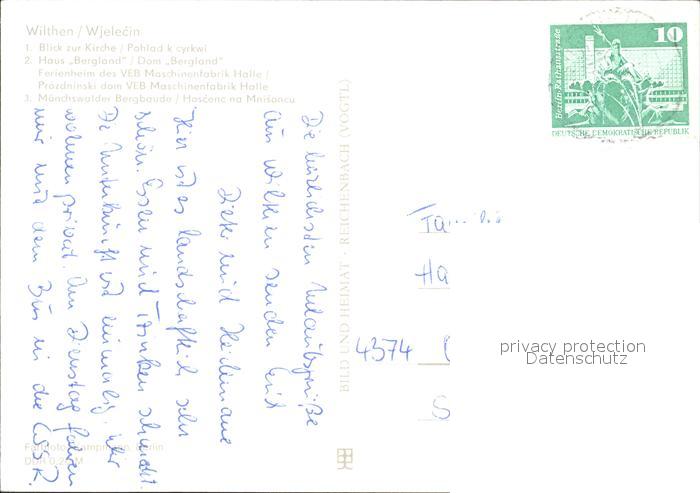 Wilthen / Wjelećin
1. Blick zur Kirche / Pohlad k cyrkwi
2. Haus „Bergland" / Dom „Bergland"
Ferienheim des VEB Maschinenfabrik Halle /
Prózdninski dom VEB Maschinenfabrik Halle
3. Mönchswalder Bergbaude / Hosćenc na Mnišoncu
Die herzlichsten Urlaubsgrüße
aus Wilthen senden Euch
Dieter und Heidemarie
Hier ist es landschaftlich sehr
schön. Essen und Trinken schmeckt.
Die Unterkunft ist einmalig, wir
wohnen privat. Am Dienstag fahren
wir mit dem Bus in die ČSSR.
BILD UND HEIMAT · REICHENBACH (VOGTL)
Berlin, Rathausstraße
10
DEUTSCHE DEMOKRATISCHE REPUBLIK
Familie
Ha
4374
S
privacy protection
Datenschutz
Berlin
DDR 0,20 M